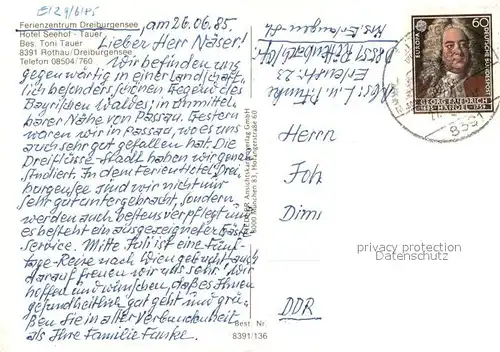 E129/6185
Ferienzentrum Dreiburgensee
Hotel Seehof - Tauer
Bes. Toni Tauer
8391 Rothau/Dreiburgensee
Telefon 08504/760
am 26.06.85.
Lieber Herr Näser!
Wir befinden uns
gegenwärtig in einer landschaft-
lich besonders schönen Gegend des
Bayrischen Waldes, in unmittel-
barer Nähe von Passau. Gestern
waren wir in Passau, wo es uns
auch sehr gut gefallen hat. Die
Dreiflüsse-Stadt haben wir genau
studiert. In dem Ferienhotel Drei-
burgensee sind wir nicht nur
sehr gut untergebracht, sondern
werden auch bestens verpflegt und
es besteht ein ausgezeichneter Gäste-
Service. Mitte Juli ist eine Fünf-
tage-Reise nach Wien gebucht auch
darauf freuen wir uns sehr! Wir
hoffen und wünschen, daß es Ihnen
gesundheitlich gut geht und grü-
ßen Sie in alter Verbundenheit
als Ihre Familie Funke.
Ansichtskartenverlag GmbH
8000 München 83, Hofangerstraße 60
Best. Nr.
8391/136
Abs.: L. u. P. Funke
Erlenstr. 23
D 8551
Krs. Erlangen
Herrn
Joh
Dimi
DDR
EUROPA
60
DEUTSCHE BUNDESPOST
GEORG FRIEDRICH
1685 HÄNDEL 1759
8391
privates Ansichtskarten
Datenschutz